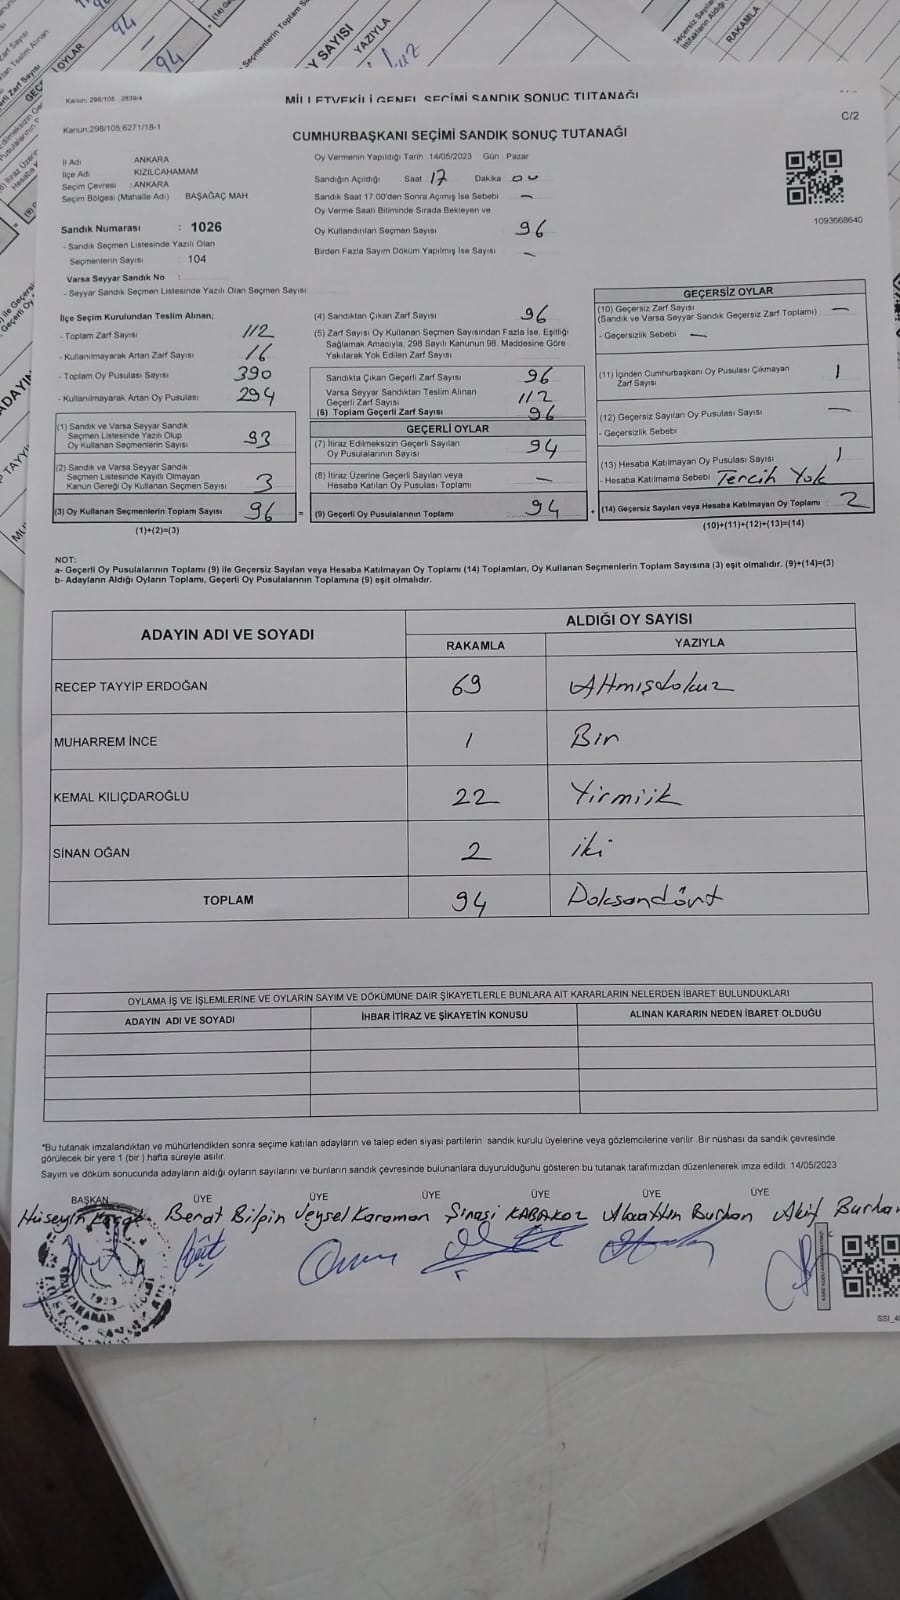 94
94
OY SAYISI
YAZIYLA
RAKAMLA
Kanun: 298/105 2839/4
MİLLETVEKİLİ GENEL SEÇİMİ SANDIK SONUÇ TUTANAĞI
Kanun:298/105,6271/18-1
C/2
CUMHURBAŞKANI SEÇİMİ SANDIK SONUÇ TUTANAĞI
İl Adı ANKARA
İlçe Adı KIZILCAHAMAM
Seçim Çevresi : ANKARA
Seçim Bölgesi (Mahalle Adı) BAŞAĞAÇ MAH
Sandık Numarası : 1026
- Sandık Seçmen Listesinde Yazılı Olan
Seçmenlerin Sayısı : 104
Varsa Seyyar Sandık No :
- Seyyar Sandık Seçmen Listesinde Yazılı Olan Seçmen Sayısı
Oy Vermenin Yapıldığı Tarih 14/05/2023 Gün Pazar
Sandığın Açıldığı Saat 17 Dakika 00
Sandık Saat 17:00'den Sonra Açılmış İse Sebebi —
Oy Verme Saati Bitiminde Sırada Bekleyen ve
Oy Kullandırılan Seçmen Sayısı 96
Birden Fazla Sayım Döküm Yapılmış İse Sayısı —
1093668640
İlçe Seçim Kurulundan Teslim Alınan;
- Toplam Zarf Sayısı 112
- Kullanılmayarak Artan Zarf Sayısı 16
- Toplam Oy Pusulası Sayısı 390
- Kullanılmayarak Artan Oy Pusulası 294
(1) Sandık ve Varsa Seyyar Sandık
Seçmen Listesinde Yazılı Olup
Oy Kullanan Seçmenlerin Sayısı 93
(2) Sandık ve Varsa Seyyar Sandık
Seçmen Listesinde Kayıtlı Olmayan
Kanun Gereği Oy Kullanan Seçmen Sayısı 3
(3) Oy Kullanan Seçmenlerin Toplam Sayısı 96
(1)+(2)=(3)
(4) Sandıktan Çıkan Zarf Sayısı 96
(5) Zarf Sayısı Oy Kullanan Seçmen Sayısından Fazla İse, Eşitliği
Sağlamak Amacıyla, 298 Sayılı Kanunun 98. Maddesine Göre
Yakılarak Yok Edilen Zarf Sayısı
Sandıkta Çıkan Geçerli Zarf Sayısı 96
Varsa Seyyar Sandıktan Teslim Alınan
Geçerli Zarf Sayısı 112
(6) Toplam Geçerli Zarf Sayısı 96
GEÇERLİ OYLAR
(7) İtiraz Edilmeksizin Geçerli Sayılan
Oy Pusulalarının Sayısı 94
(8) İtiraz Üzerine Geçerli Sayılan veya
Hesaba Katılan Oy Pusulası Toplamı —
= (9) Geçerli Oy Pusulalarının Toplamı 94
GEÇERSİZ OYLAR
(10) Geçersiz Zarf Sayısı —
(Sandık ve Varsa Seyyar Sandık Geçersiz Zarf Toplamı)
- Geçersizlik Sebebi —
(11) İçinden Cumhurbaşkanı Oy Pusulası Çıkmayan
Zarf Sayısı 1
(12) Geçersiz Sayılan Oy Pusulası Sayısı —
- Geçersizlik Sebebi
(13) Hesaba Katılmayan Oy Pusulası Sayısı 1
- Hesaba Katılmama Sebebi Tercih Yok
+ (14) Geçersiz Sayılan veya Hesaba Katılmayan Oy Toplamı 2
(10)+(11)+(12)+(13)=(14)
NOT:
a- Geçerli Oy Pusulalarının Toplamı (9) ile Geçersiz Sayılan veya Hesaba Katılmayan Oy Toplamı (14) Toplamları, Oy Kullanan Seçmenlerin Toplam Sayısına (3) eşit olmalıdır. (9)+(14)=(3)
b- Adayların Aldığı Oyların Toplamı, Geçerli Oy Pusulalarının Toplamına (9) eşit olmalıdır.
ADAYIN ADI VE SOYADI
ALDIĞI OY SAYISI
RAKAMLA YAZIYLA
RECEP TAYYİP ERDOĞAN 69 Altmışdokuz
MUHARREM İNCE 1 Bir
KEMAL KILIÇDAROĞLU 22 Yirmiik
SİNAN OĞAN 2 iki
TOPLAM 94 Doksandört
OYLAMA İŞ VE İŞLEMLERİNE VE OYLARIN SAYIM VE DÖKÜMÜNE DAİR ŞİKAYETLERLE BUNLARA AİT KARARLARIN NELERDEN İBARET BULUNDUKLARI
ADAYIN ADI VE SOYADI İHBAR İTİRAZ VE ŞİKAYETİN KONUSU ALINAN KARARIN NEDEN İBARET OLDUĞU
*Bu tutanak imzalandıktan ve mühürlendikten sonra seçime katılan adayların ve talep eden siyasi partilerin sandık kurulu üyelerine veya gözlemcilerine verilir .Bir nüshası da sandık çevresinde
görülecek bir yere 1 (bir ) hafta süreyle asılır.
Sayım ve döküm sonucunda adayların aldığı oyların sayılarını ve bunların sandık çevresinde bulunanlara duyurulduğunu gösteren bu tutanak tarafımızdan düzenlenerek imza edildi. 14/05/2023
BAŞKAN ÜYE ÜYE ÜYE ÜYE ÜYE ÜYE
Hüseyin Berat Bilgin Veysel Karaman Şinasi KABAKOZ Alaattin Burhan Akif Burha
1923